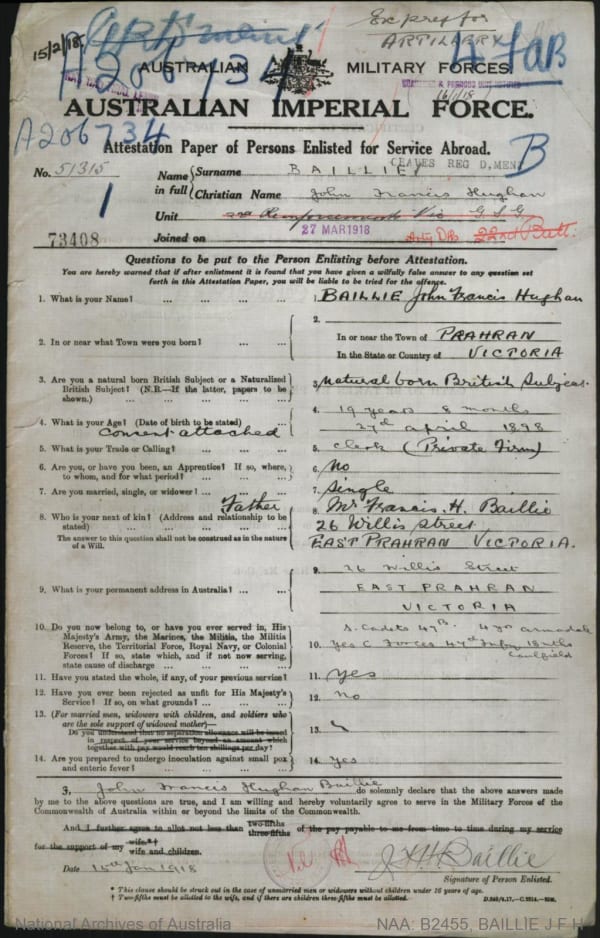 15/2/18
Ex pres for
ARTILLERY
A206734
4 FAB
AUSTRALIAN MILITARY FORCES.
16/1/18
AUSTRALIAN IMPERIAL FORCE.
A206734
Attestation Paper of Persons Enlisted for Service Abroad.
B
No. 51315
Name in full
Surname BAILLIE
Christian Name John Francis Hughan
1
Unit Reinforcements Vic G.S.G.
27 MAR 1918
73408
Joined on 22nd Batt.
Questions to be put to the Person Enlisting before Attestation.
You are hereby warned that if after enlistment it is found that you have given a wilfully false answer to any question set
forth in this Attestation Paper, you will be liable to be tried for the offence.
1. What is your Name? ... ... ... ...
1. BAILLIE John Francis Hughan
2. In or near what Town were you born? ... ...
2.
In or near the Town of PRAHRAN
In the State or Country of VICTORIA
3. Are you a natural born British Subject or a Naturalized
British Subject? (N.B.—If the latter, papers to be
shown.) ... ... ... ...
3. Natural born British Subject.
4. What is your Age? (Date of birth to be stated) ...
consent attached
4. 19 years 8 months
27th april 1898
5. What is your Trade or Calling? ... ... ...
5. Clerk (Private Firm)
6. Are you, or have you been, an Apprentice? If so, where,
to whom, and for what period? ... ... ...
6. No
7. Are you married, single, or widower? ... ... ...
7. Single
8. Who is your next of kin? (Address and relationship to be
stated) ... ... ... ...
The answer to this question shall not be construed as in the nature
of a Will.
Father
8. Mr Francis. H. Baillie
26 Willis Street
EAST PRAHRAN VICTORIA.
9. What is your permanent address in Australia? ... ...
9. 26 Willis Street
EAST PRAHRAN
VICTORIA
10. Do you now belong to, or have you ever served in, His
Majesty's Army, the Marines, the Militia, the Militia
Reserve, the Territorial Force, Royal Navy, or Colonial
Forces? If so, state which, and if not now serving,
state cause of discharge ... ... ... ...
S. Cadets 47th. 4 yrs armadale
10. Yes C. Forces 47th Infy
Caulfield
11. Have you stated the whole, if any, of your previous service?
11. Yes
12. Have you ever been rejected as unfit for His Majesty's
Service? If so, on what grounds? ... ... ...
12. No
13. (For married men, widowers with children, and soldiers who
are the sole support of widowed mother)—
Do you understand that no separation allowance will be issued
in respect of your service beyond an amount which
together with pay would reach ten shillings per day?
13.
14. Are you prepared to undergo inoculation against small pox
and enteric fever? ... ... ... ...
14. Yes
I, John Francis Hughan Baillie do solemnly declare that the above answers made
by me to the above questions are true, and I am willing and hereby voluntarily agree to serve in the Military Forces of the
Commonwealth of Australia within or beyond the limits of the Commonwealth.
And I further agree to allot not less than two-fifths three-fifths of the pay payable to me from time to time during my service
for the support of my wife.*† wife and children.
Date 15th Jan 1918
J.F.H. Baillie
Signature of Person Enlisted.
* This clause should be struck out in the case of unmarried men or widowers without children under 16 years of age.
† Two-fifths must be allotted to the wife, and if there are children three-fifths must be allotted.
National Archives of Australia
NAA: B2455, BAILLIE J F H